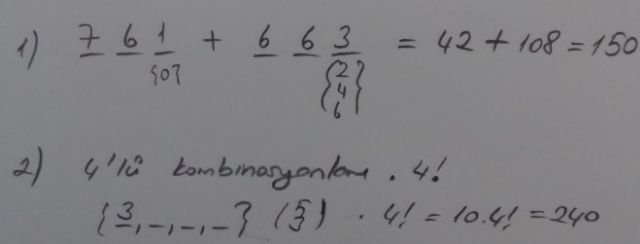 1) 7 6 1 + 6 6 3 = 42 + 108 = 150
{0} {2
4
6}
2) 4'lü kombinasyonları . 4!
{3,-,-,-} (5 3) . 4! = 10.4! = 240